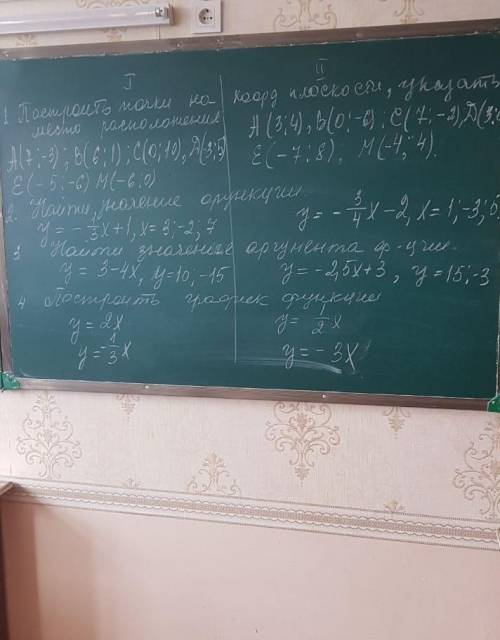 I
II
1 Построить точки на коорд плоскости, указать
место расположения
A(7;-3); B(6;1); C(0;10), D(3;5)
E(-5;-6) M(-6;0)
A(3;4), B(0;-6); C(7;-2), D(3;
E(-7;8); M(-4;4).
2. Найти, значение функции
y = -1/3x+1, x=3;-2;7
y = -3/4x-2, x=1;-3;5
3 Найти значение аргумента ф-ции.
y = 3-4x, y=10;-15
y = -2,5x+3, y=15;-3
4 Построить график функции
y = 2x
y = -1/3x
y = 1/2x
y = -3x